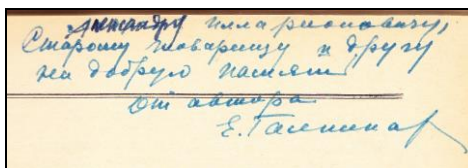 Александру Илларионовичу,
Старому товарищу и другу
на добрую память
От автора
Е.